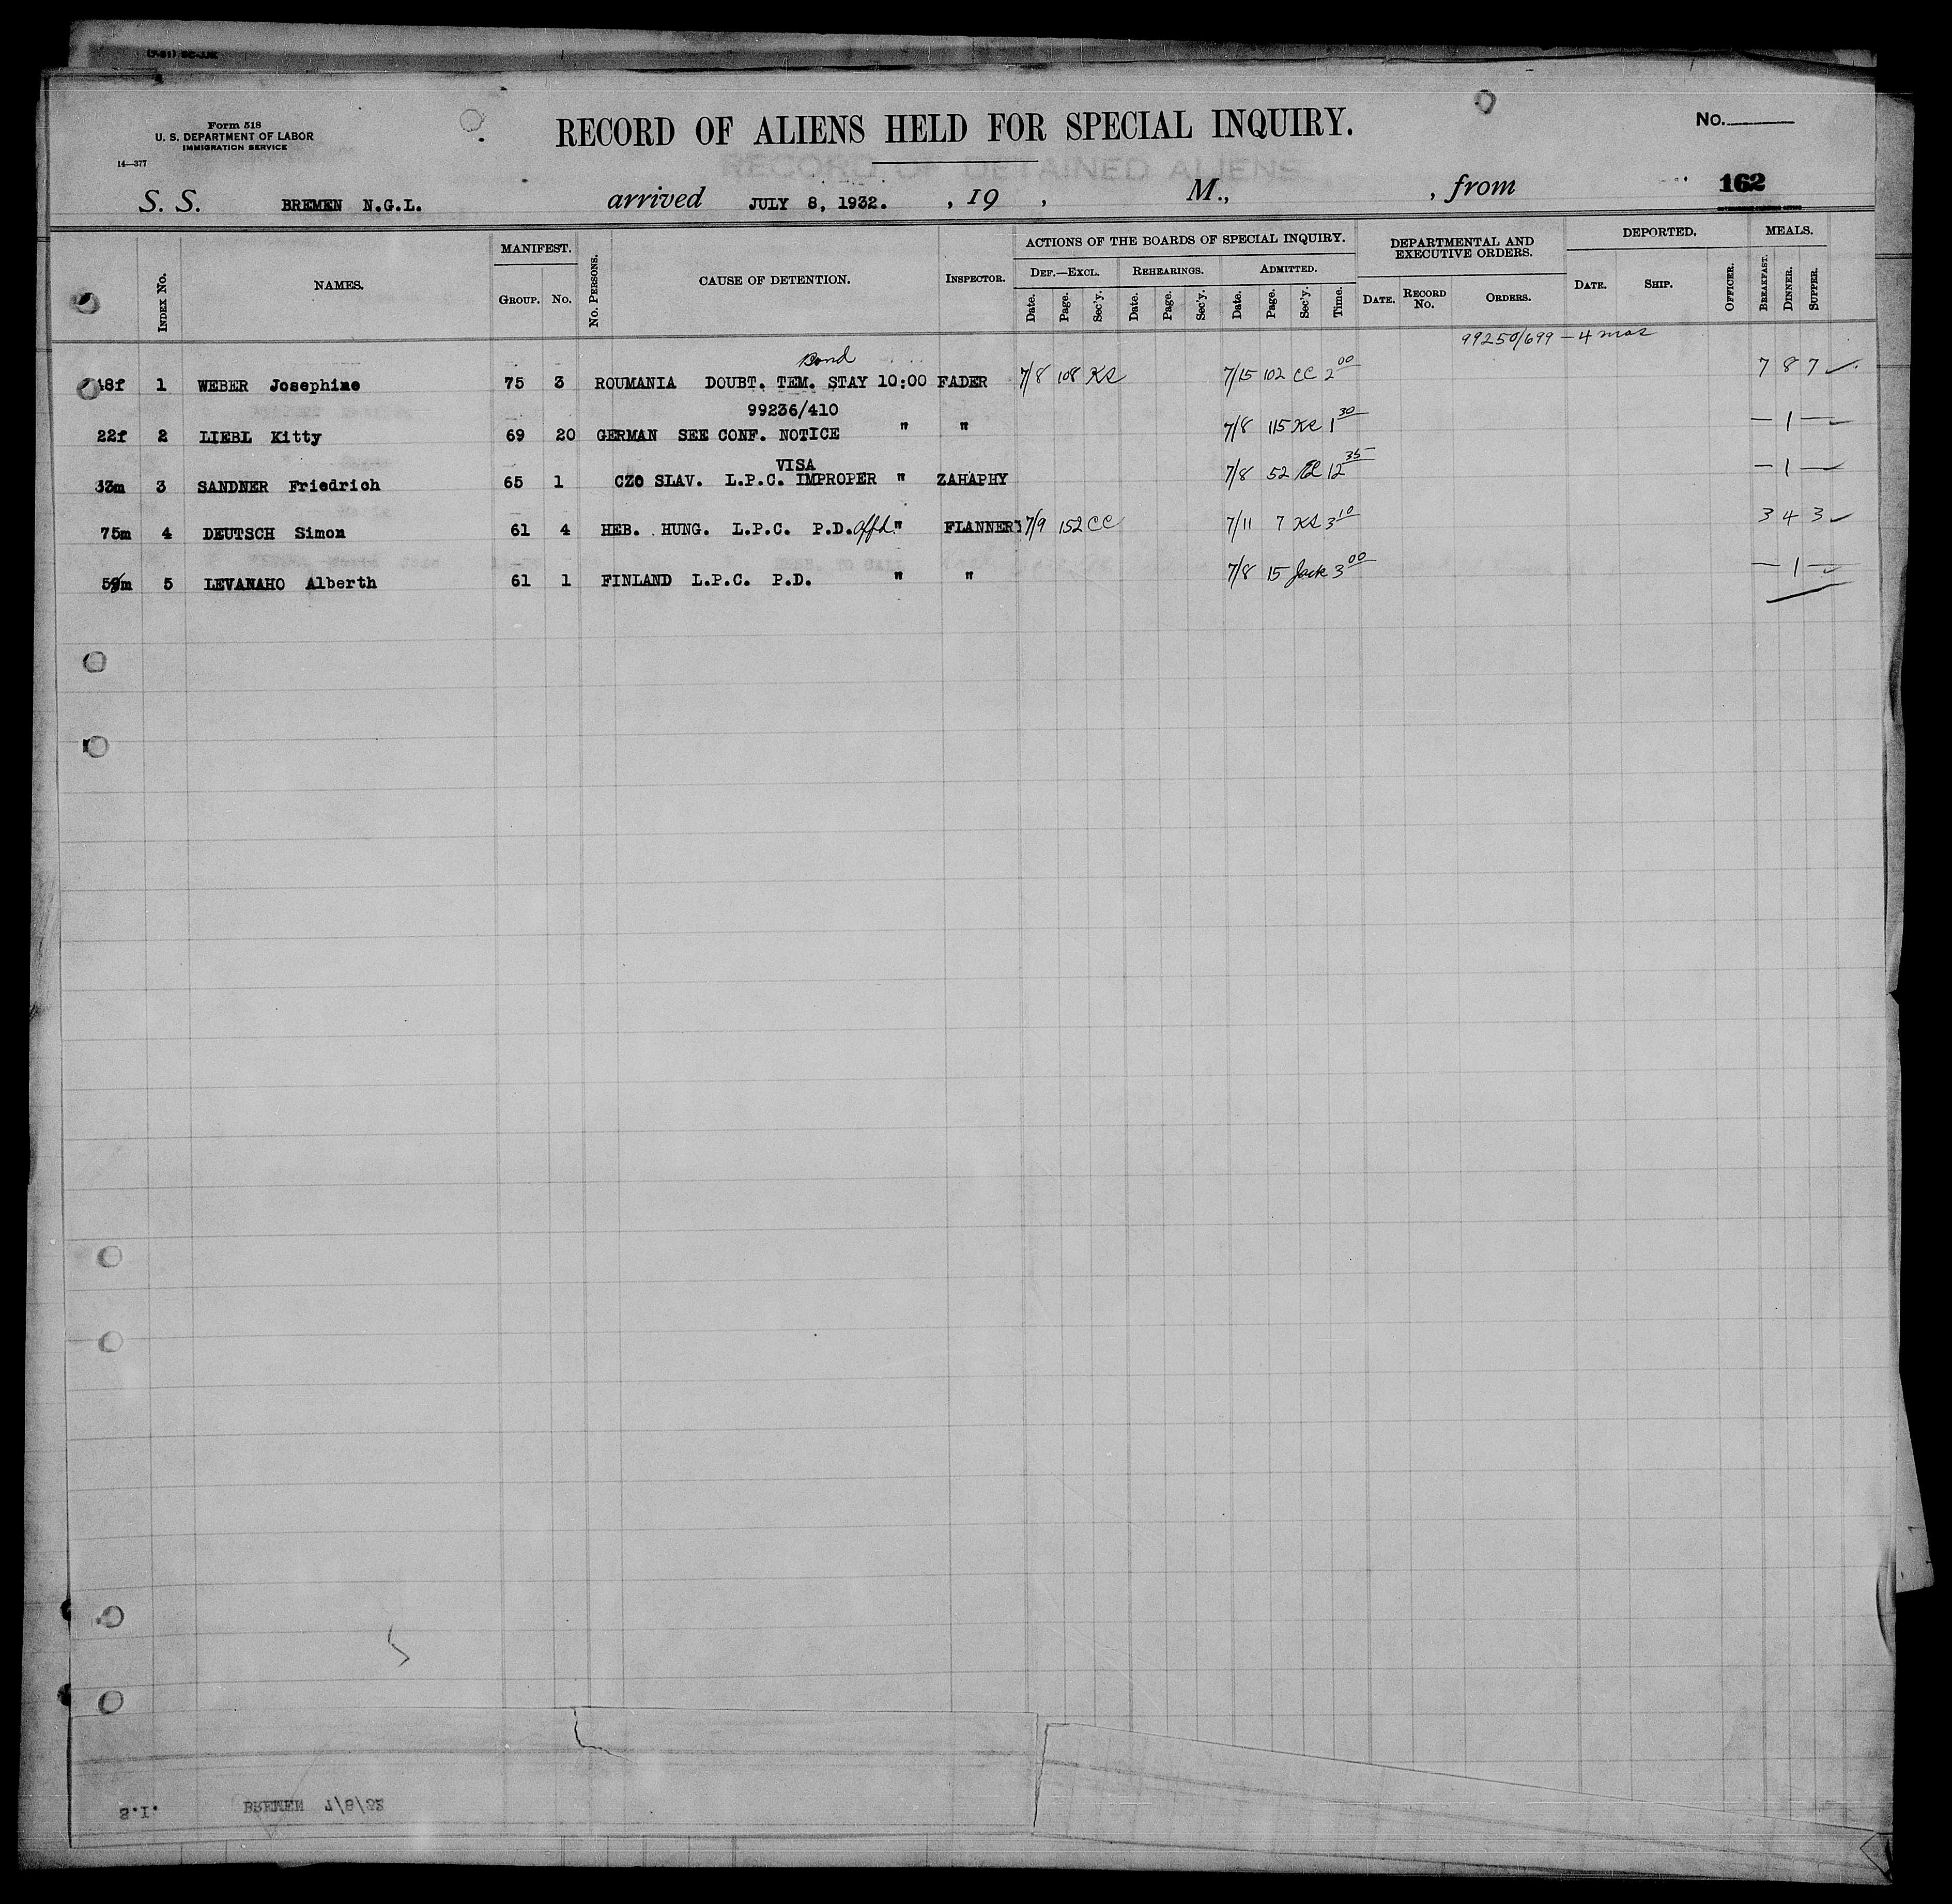 Form 518
U. S. DEPARTMENT OF LABOR
IMMIGRATION SERVICE
14—377
RECORD OF ALIENS HELD FOR SPECIAL INQUIRY.
No.
RECORD OF DETAINED ALIENS
S. S. BREMEN N.G.L. arrived JULY 8, 1932. , 19 , M., , from 162
INDEX No. NAMES. MANIFEST. GROUP. No. No. PERSONS. CAUSE OF DETENTION. INSPECTOR. ACTIONS OF THE BOARDS OF SPECIAL INQUIRY. DEPARTMENTAL AND EXECUTIVE ORDERS. DEPORTED. MEALS.
DEF.—EXCL. REHEARINGS. ADMITTED.
Date. Page. Sec'y. Date. Page. Sec'y. Date. Page. Sec'y. Time. DATE. RECORD No. ORDERS. DATE. SHIP. OFFICER. BREAKFAST. DINNER. SUPPER.
99250/699 – 4 mos
Bond
48f 1 WEBER Josephine 75 3 ROUMANIA DOUBT. TEM. STAY 10:00 FADER 7/8 108 KS 7/15 102 CC 2 00 7 8 7 ✓
99236/410
22f 2 LIEBL Kitty 69 20 GERMAN SEE CONF. NOTICE " " 7/8 115 KS 1 30 — 1 — ✓
VISA
33m 3 SANDNER Friedrich 65 1 CZO SLAV. L.P.C. IMPROPER " ZAHAPHY 7/8 52 12 35 — 1 — ✓
75m 4 DEUTSCH Simon 61 4 HEB. HUNG. L.P.C. P.D. Affd. " FLANNERY 7/9 152 CC 7/11 7 KS 3 10 3 4 3 ✓
59m 5 LEVANAHO Alberth 61 1 FINLAND L.P.C. P.D. " " 7/8 15 Jack 3 00 — 1 — ✓
S.I. BREMEN 7/8/32